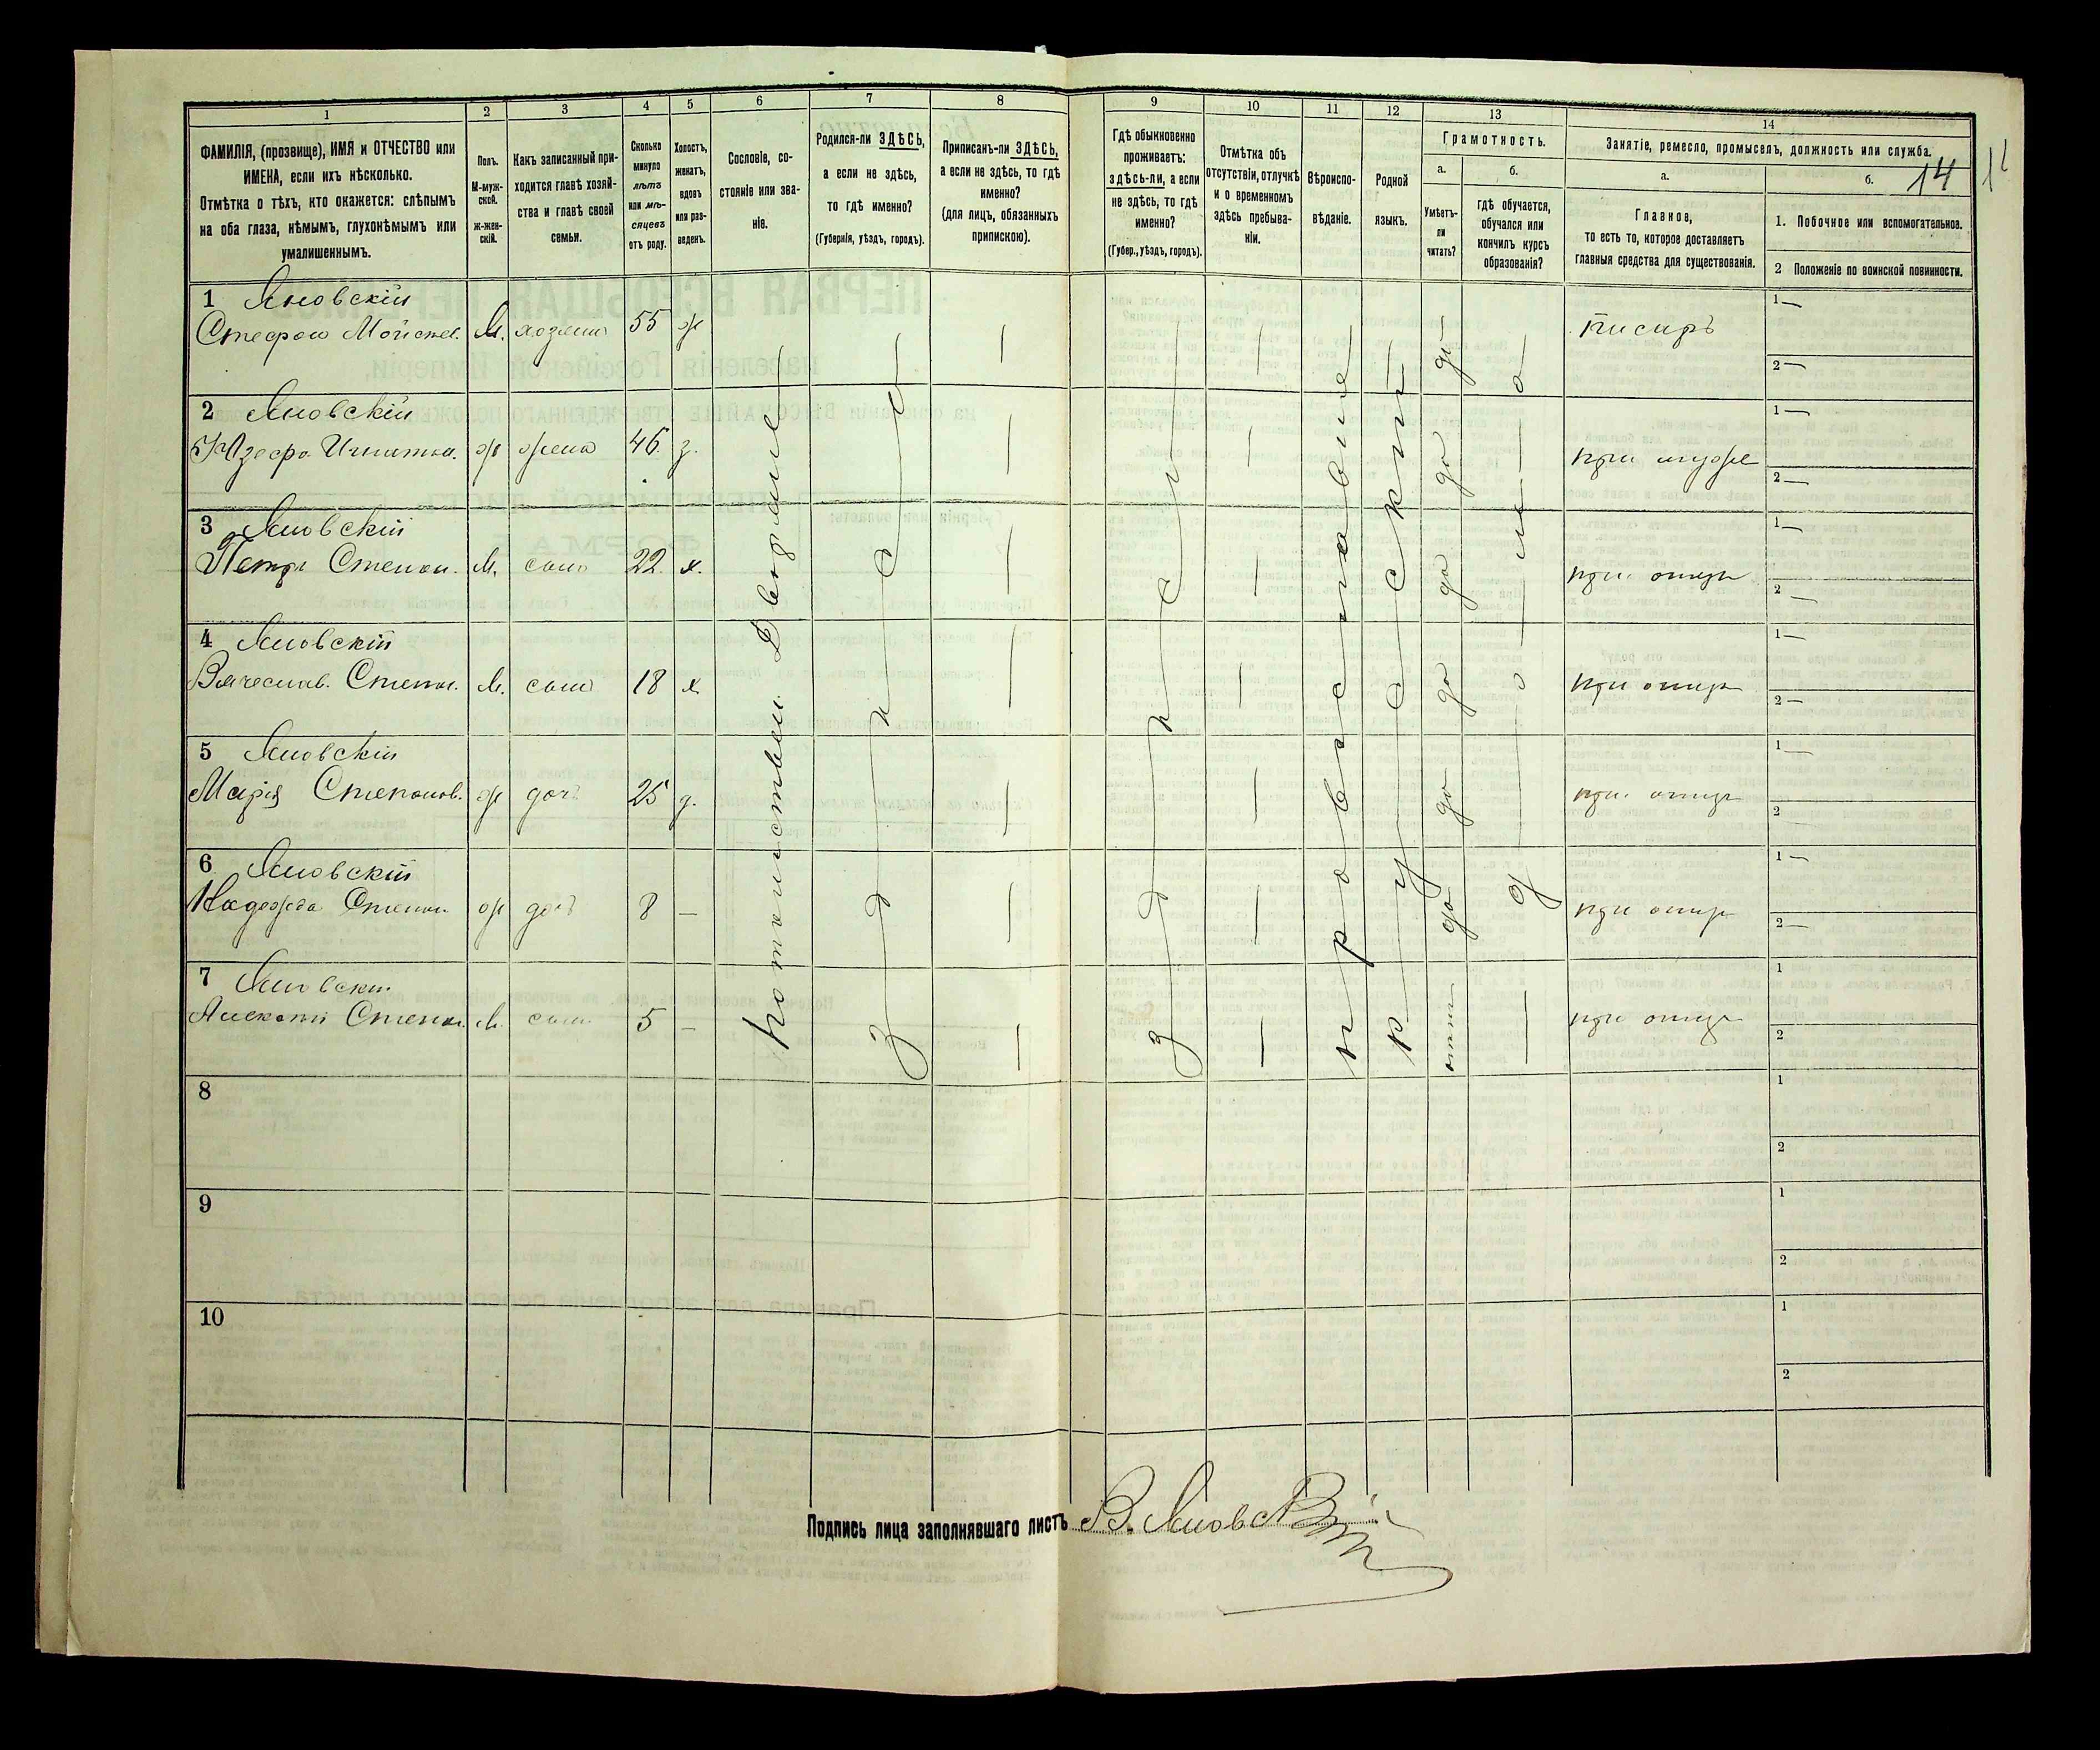 1 2 3 4 5 6 7 8 9 10 11 12 13 14
ФАМИЛІЯ, (прозвище), ИМЯ и ОТЧЕСТВО или
ИМЕНА, если ихъ нѣсколько.
Отмѣтка о тѣхъ, кто окажется: слѣпымъ
на оба глаза, нѣмымъ, глухонѣмымъ или
умалишеннымъ.
Полъ.
М-муж-
ской.
ж-жен-
скій.
Какъ записанный при-
ходится главѣ хозяй-
ства и главѣ своей
семьи.
Сколько
минуло
лѣтъ
или мѣ-
сяцевъ
отъ роду.
Холостъ,
женатъ,
вдовъ
или раз-
веденъ.
Сословіе, со-
стояніе или зва-
ніе.
Родился-ли ЗДѢСЬ,
а если не здѣсь,
то гдѣ именно?
(Губернія, уѣздъ, городъ).
Приписанъ-ли ЗДѢСЬ,
а если не здѣсь, то гдѣ
именно?
(для лицъ, обязанныхъ
припискою).
Гдѣ обыкновенно
проживаетъ:
здѣсь-ли, а если
не здѣсь, то гдѣ
именно?
(Губер., уѣздъ, городъ).
Отмѣтка объ
отсутствіи, отлучкѣ
и о временномъ
здѣсь пребыва-
ніи.
Вѣроиспо-
вѣданіе.
Родной
языкъ.
Грамотность.
а.
Умѣетъ-
ли
читать?
б.
гдѣ обучается,
обучался или
кончилъ курсъ
образованія?
Занятіе, ремесло, промыселъ, должность или служба.
а.
Главное,
то есть то, которое доставляетъ
главныя средства для существованія.
б.
14
1. Побочное или вспомогательное.
2 Положеніе по воинской повинности.
1 Яновскій
Стефан М. хозяин 55 ж писарь
1—
2—
2 Яновскій
Юзефа ж жена 46 з. при муже
1—
2—
3 Яновскій
Петр Степан. М. сын 22. х. при отцѣ
1—
2—
4 Яновскій
Вячеслав. Степан. М. сын 18 х. при отцѣ
1—
2—
5 Яновскій
Марія Степанов. ж доч 25 д. при отцѣ
1—
2—
6 Яновскій
Надежда Степан. ж доч 8 — при отцѣ
1—
2—
7 Яновскій
Степан. М. сын 5 — при отцѣ
1
2
потомствен. Дворяне
здѣсь
здѣсь
православное
русскій
да да да да да да
дома
8
1
2
9
1
2
10
1
2
Подпись лица заполнявшаго листъ В. Яновскій